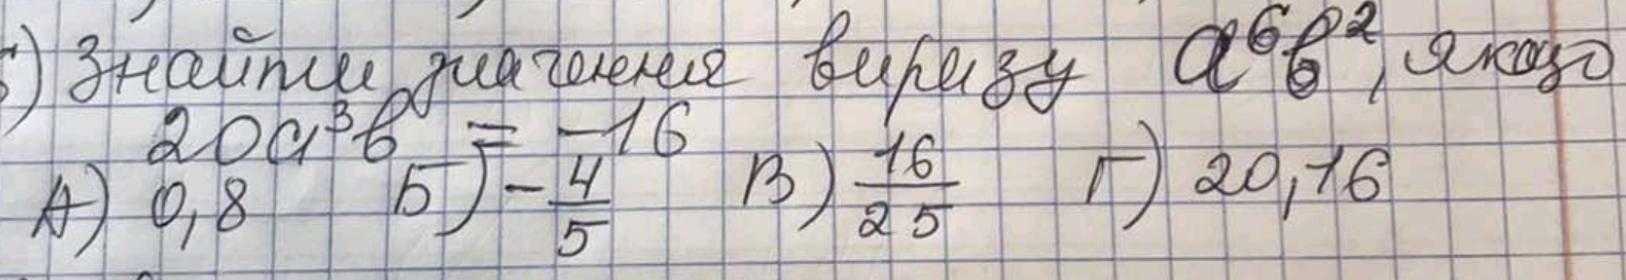 б) Знайти значення виразу a⁶b², якщо
20a³b = -16
А) 0,8 Б) -4/5 В) 16/25 Г) 20,16